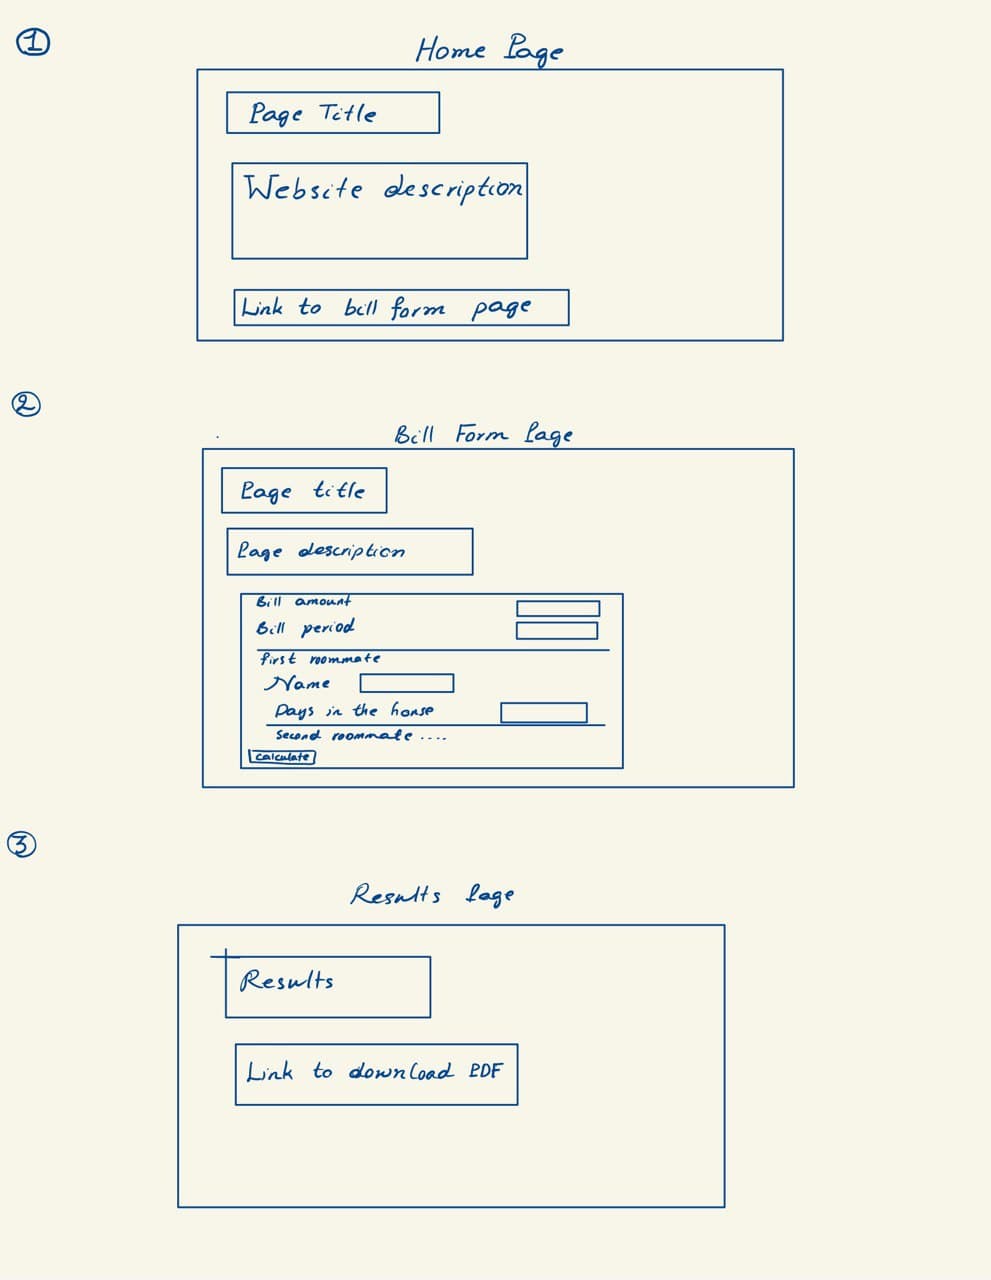 1
Home Page
Page Title
Website description
Link to bill form page
2
Bill Form Page
Page title
Page description
Bill amount
Bill period
first roommate
Name
Days in the house
Second roommate ....
calculate
3
Results Page
Results
Link to download PDF